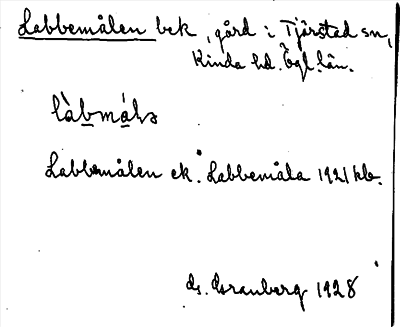 Labbemålen bek, gård i Tjärstad sn,
Kinda hd. Ögl. län.
làbmáls
Labbemålen ek. Labbemåla 1921 kb.
1928